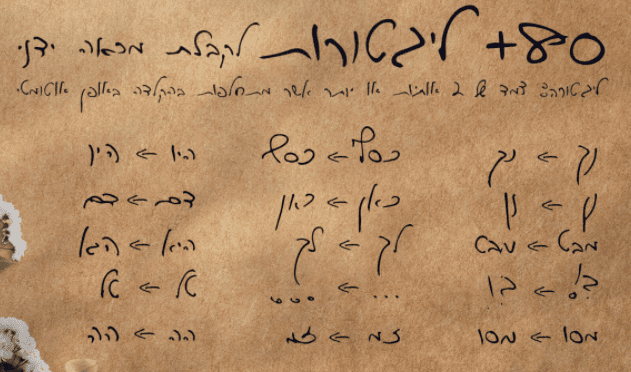 +80 ליגטורות לקבלת מראה ידני
ליגטורה: צמד של 2 אותיות או יותר אשר מתחלפות בהקלדה באופן אוטומטי
נך ← נך כסף ← כסף היו ← היו
ון ← ון כאן ← כאן
מבט ← מבט לך ← לך היא ← היא
?! ← ?! ... ← ... אל ← אל
מסו ← מסו זמ ← זמ הה ← הה